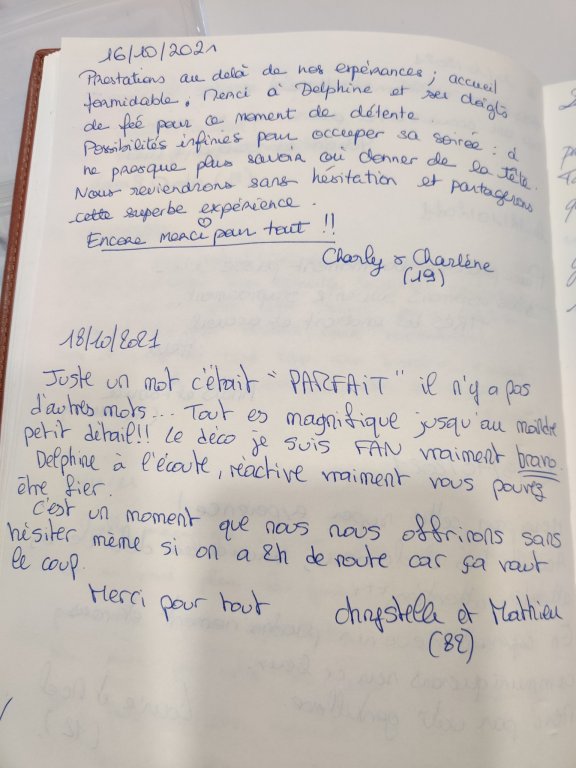 16/10/2021
Prestations au delà de nos espérances ; accueil
formidable. Merci à Delphine et ses doigts
de feé pour ce moment de détente.
Possibilités infinies pour occuper sa soirée : à
ne presque plus savoir où donner de la tête.
Nous reviendrons sans hésitation et partagerons
cette superbe expérience.
Encore merci pour tout !!
Charly & Charlène
(19)
18/10/2021
Juste un mot c'était "PARFAIT" il n'y a pas
d'autres mots... Tout es magnifique jusqu'au moindre
petit détail!! Le déco je suis FAN vraiment bravo.
Delphine à l'écoute, réactive vraiment vous pouvez
être fier.
C'est un moment que nous nous offrirons sans
hésiter même si on a 2h de route car ça vaut
le coup.
Merci pour tout
Chrystelle et Mathieu
(82)